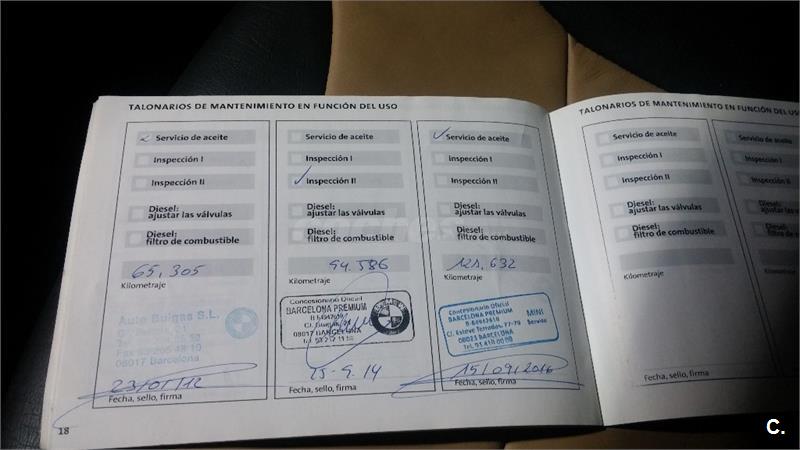 TALONARIOS DE MANTENIMIENTO EN FUNCIÓN DEL USO
Servicio de aceite
Inspección I
Inspección II
Diesel:
ajustar las válvulas
Diesel:
filtro de combustible
65,305
Kilometraje
Auto Buigas S.L.
08017 Barcelona
23/01/12
Fecha, sello, firma
Servicio de aceite
Inspección I
Inspección II
Diesel:
ajustar las válvulas
Diesel:
filtro de combustible
94.586
Kilometraje
Concesionario Oficial
BARCELONA PREMIUM
08017 BARCELONA
25-9.14
Fecha, sello, firma
Servicio de aceite
Inspección I
Inspección II
Diesel:
ajustar las válvulas
Diesel:
filtro de combustible
121,632
Kilometraje
Concesionario Oficial
BARCELONA PREMIUM
MINI
Service
08021 BARCELONA
15/09/2016
Fecha, sello, firma
18
TALONARIOS DE MANTENIMIENTO EN FUNCIÓN DEL US
Servicio de aceite
Inspección I
Inspección II
Diesel:
ajustar las válvulas
Diesel:
filtro de combustible
Kilometraje
Fecha, sello, firma
Servicio de
Inspección
Inspección
Diesel:
ajustar las
Diesel:
filtro de
Kilometraje
Fecha,
C.